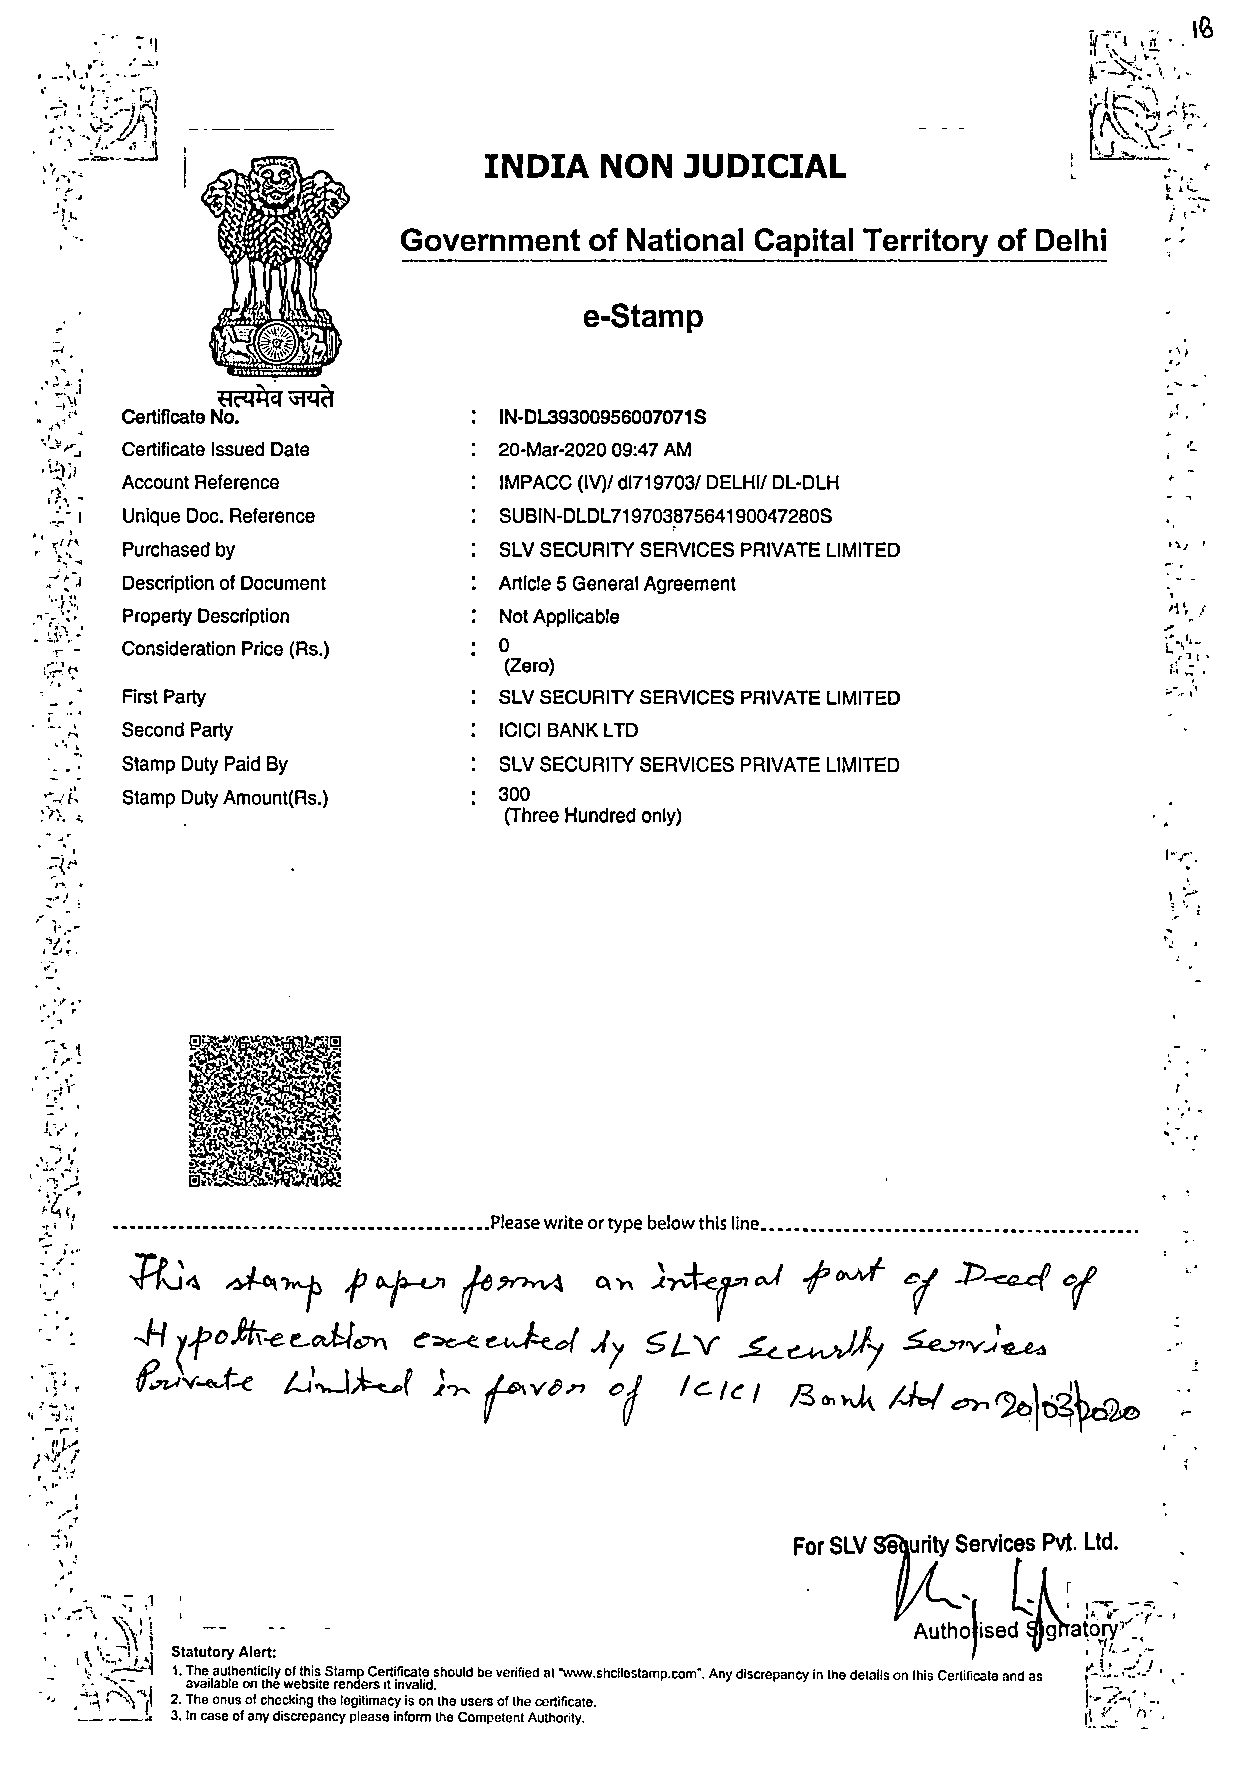 18
INDIA NON JUDICIAL
Government of National Capital Territory of Delhi
e-Stamp
सत्यमेव जयते
Certificate No. : IN-DL39300956007071S
Certificate Issued Date : 20-Mar-2020 09:47 AM
Account Reference : IMPACC (IV)/ dl719703/ DELHI/ DL-DLH
Unique Doc. Reference : SUBIN-DLDL71970387564190047280S
Purchased by : SLV SECURITY SERVICES PRIVATE LIMITED
Description of Document : Article 5 General Agreement
Property Description : Not Applicable
Consideration Price (Rs.) : 0
(Zero)
First Party : SLV SECURITY SERVICES PRIVATE LIMITED
Second Party : ICICI BANK LTD
Stamp Duty Paid By : SLV SECURITY SERVICES PRIVATE LIMITED
Stamp Duty Amount(Rs.) : 300
(Three Hundred only)
Please write or type below this line
This stamp paper forms an integral part of Deed of
Hypothecation executed by SLV Security Services
Private Limited in favor of ICICI Bank Ltd on 20/03/2020
For SLV Security Services Pvt. Ltd.
Authorised Signatory
Statutory Alert:
1. The authenticity of this Stamp Certificate should be verified at "www.shcilestamp.com". Any discrepancy in the details on this Certificate and as
available on the website renders it invalid.
2. The onus of checking the legitimacy is on the users of the certificate.
3. In case of any discrepancy please inform the Competent Authority.